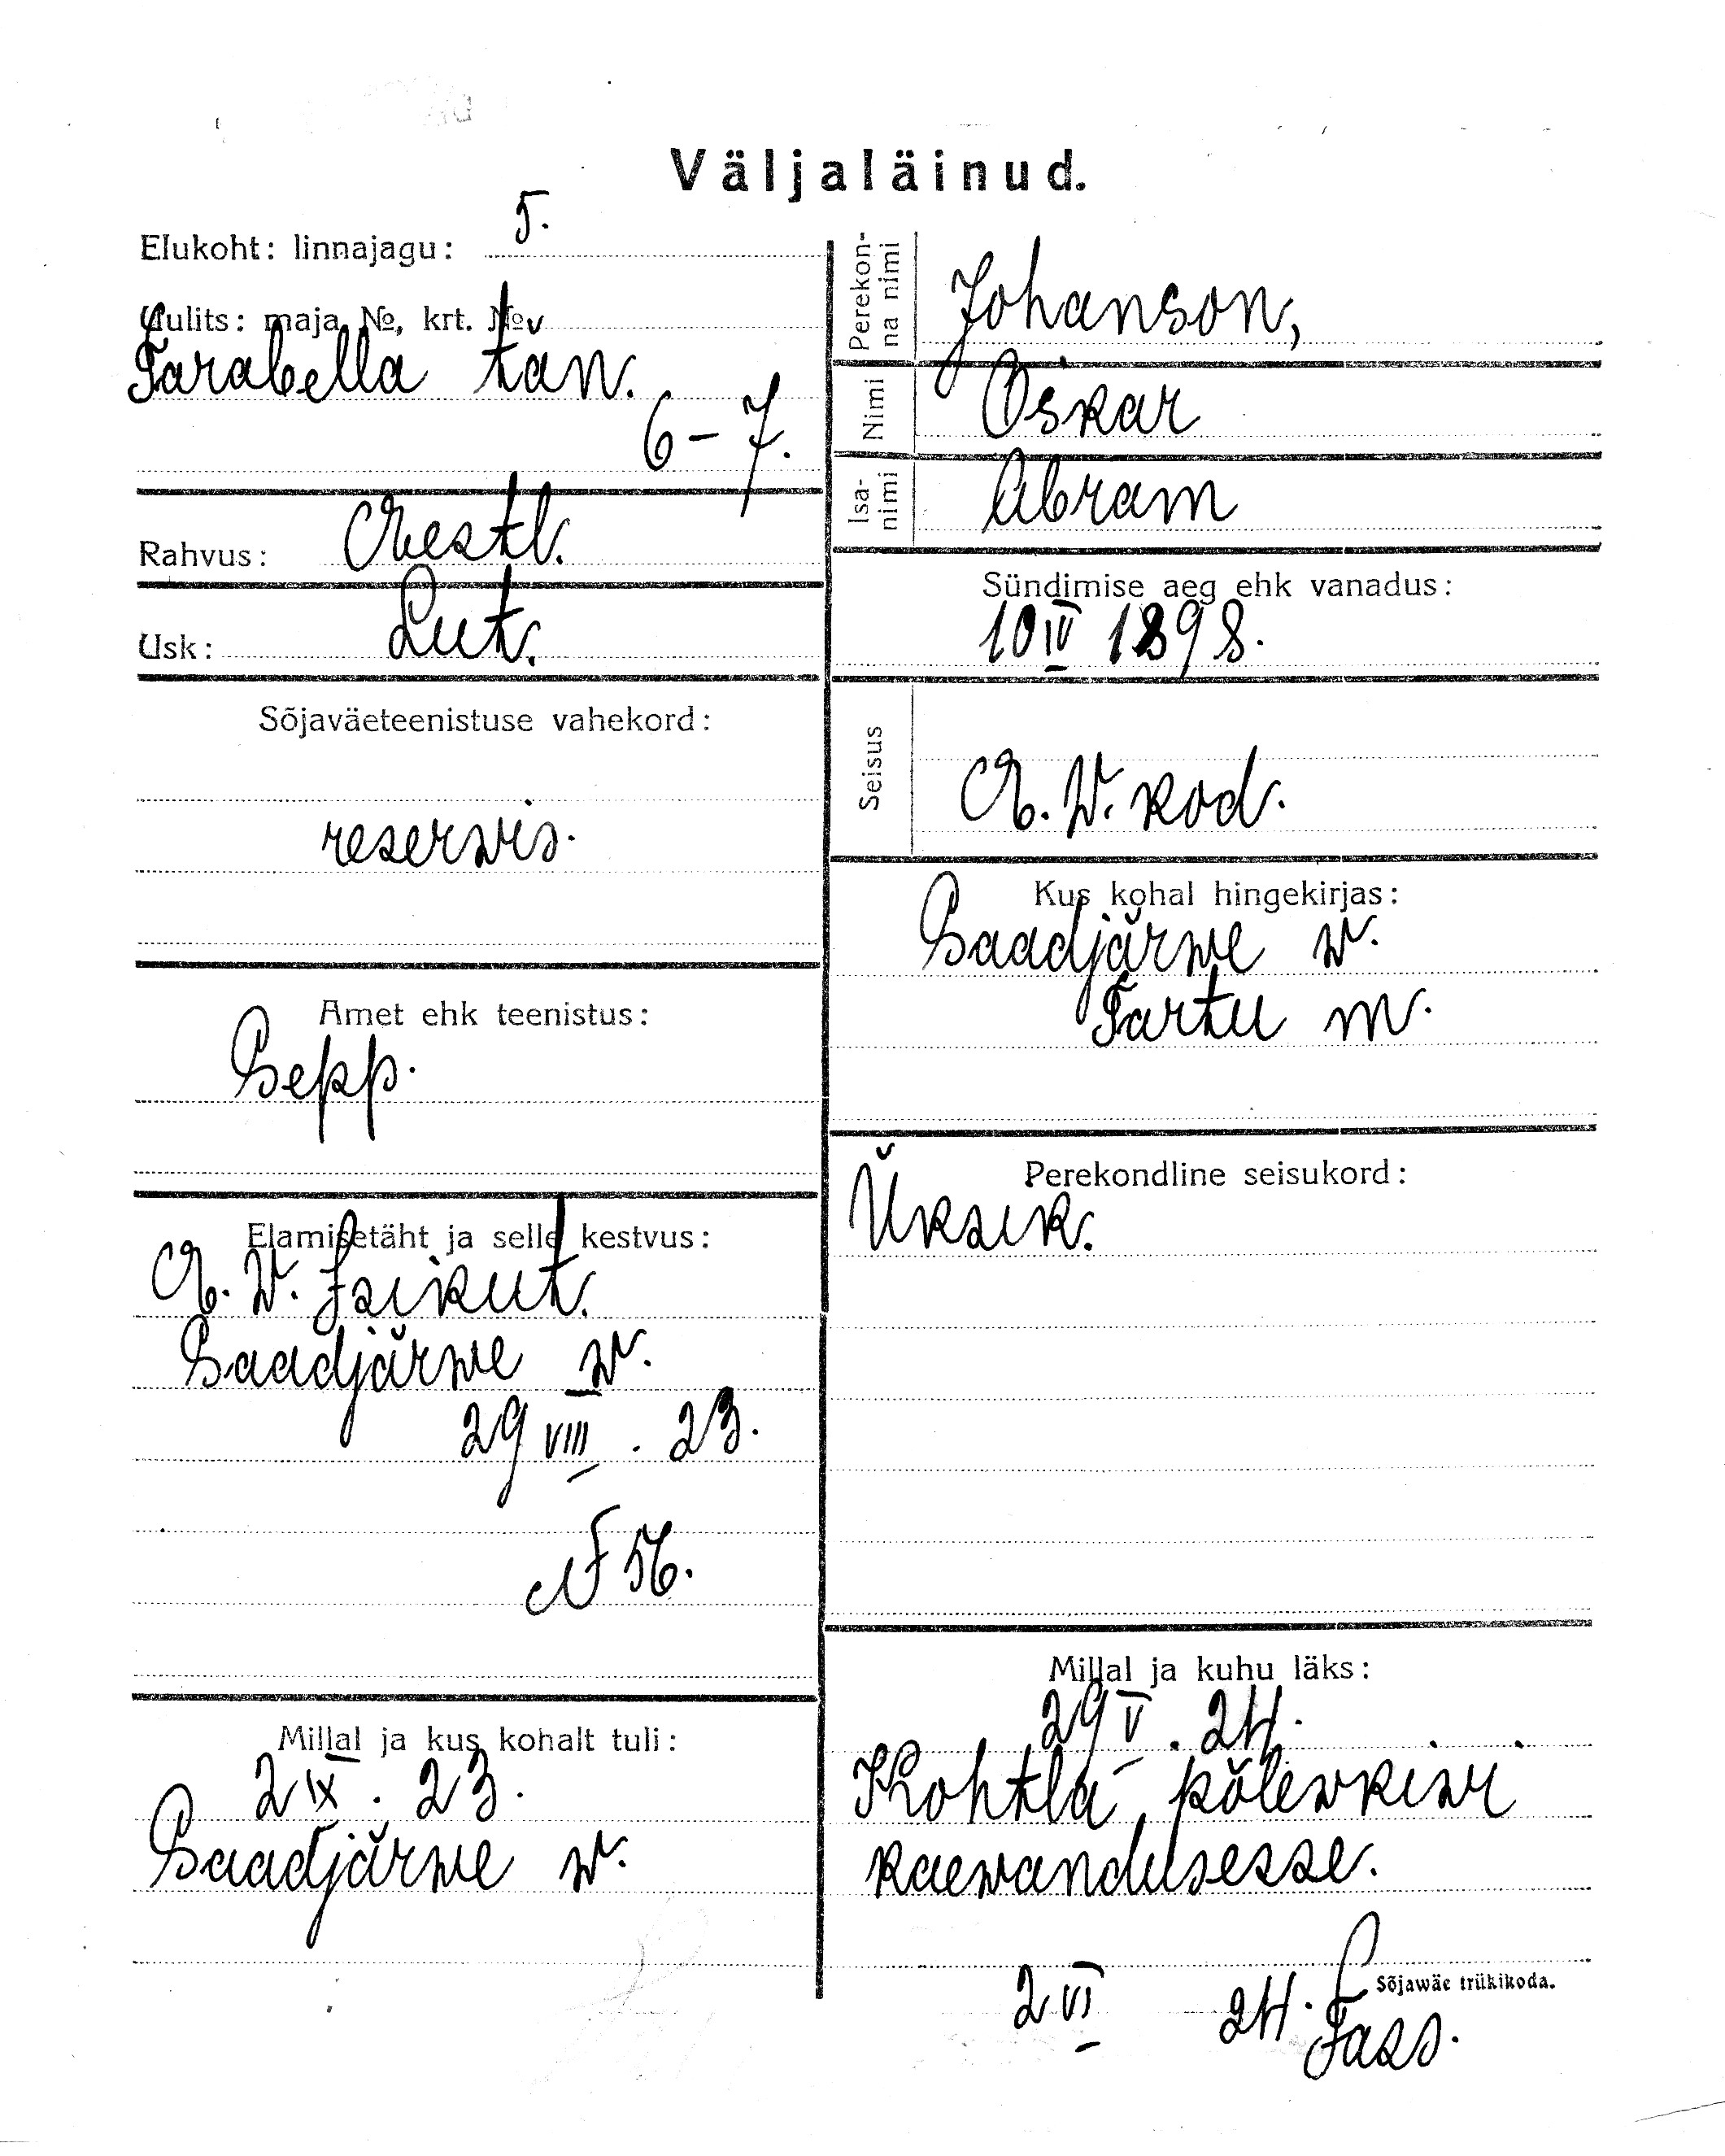 Väljaläinud.
Elukoht: linnajagu: 5.
Uulits: maja №, krt. №
Tarabella tän.
6-7.
Rahvus: Eestl.
Usk: Lut.
Sõjaväeteenistuse vahekord:
reservis.
Amet ehk teenistus:
Sepp.
Elamisetäht ja selle kestvus:
E. W. Isikut.
Saadjärwe w.
29 VIII. 23.
N 56.
Millal ja kus kohalt tuli:
2 IX. 23.
Saadjärwe w.
Perekonna nimi Johanson,
Nimi Oskar
Isanimi Abram
Sündimise aeg ehk vanadus:
10 IV 1898.
Seisus
E. W. kod.
Kus kohal hingekirjas:
Saadjärwe w.
Tartu m.
Perekondline seisukord:
Üksik.
Millal ja kuhu läks:
29 V. 24.
Kohtla põlewkiwi
kaewandusesse.
Sõjawäe trükikoda.
2 VI 24. Tass.